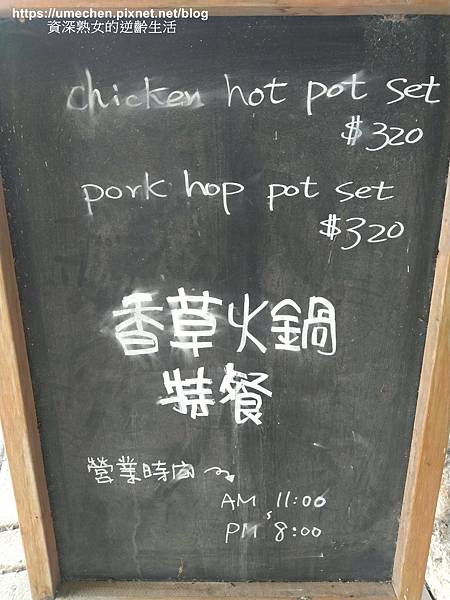 https://umechen.pixnet.net/blog
資深熟女的逆齡生活
chicken hot pot set
$320
pork hop pot set
$320
香草火鍋
特餐
營業時间
AM 11:00
PM 8:00